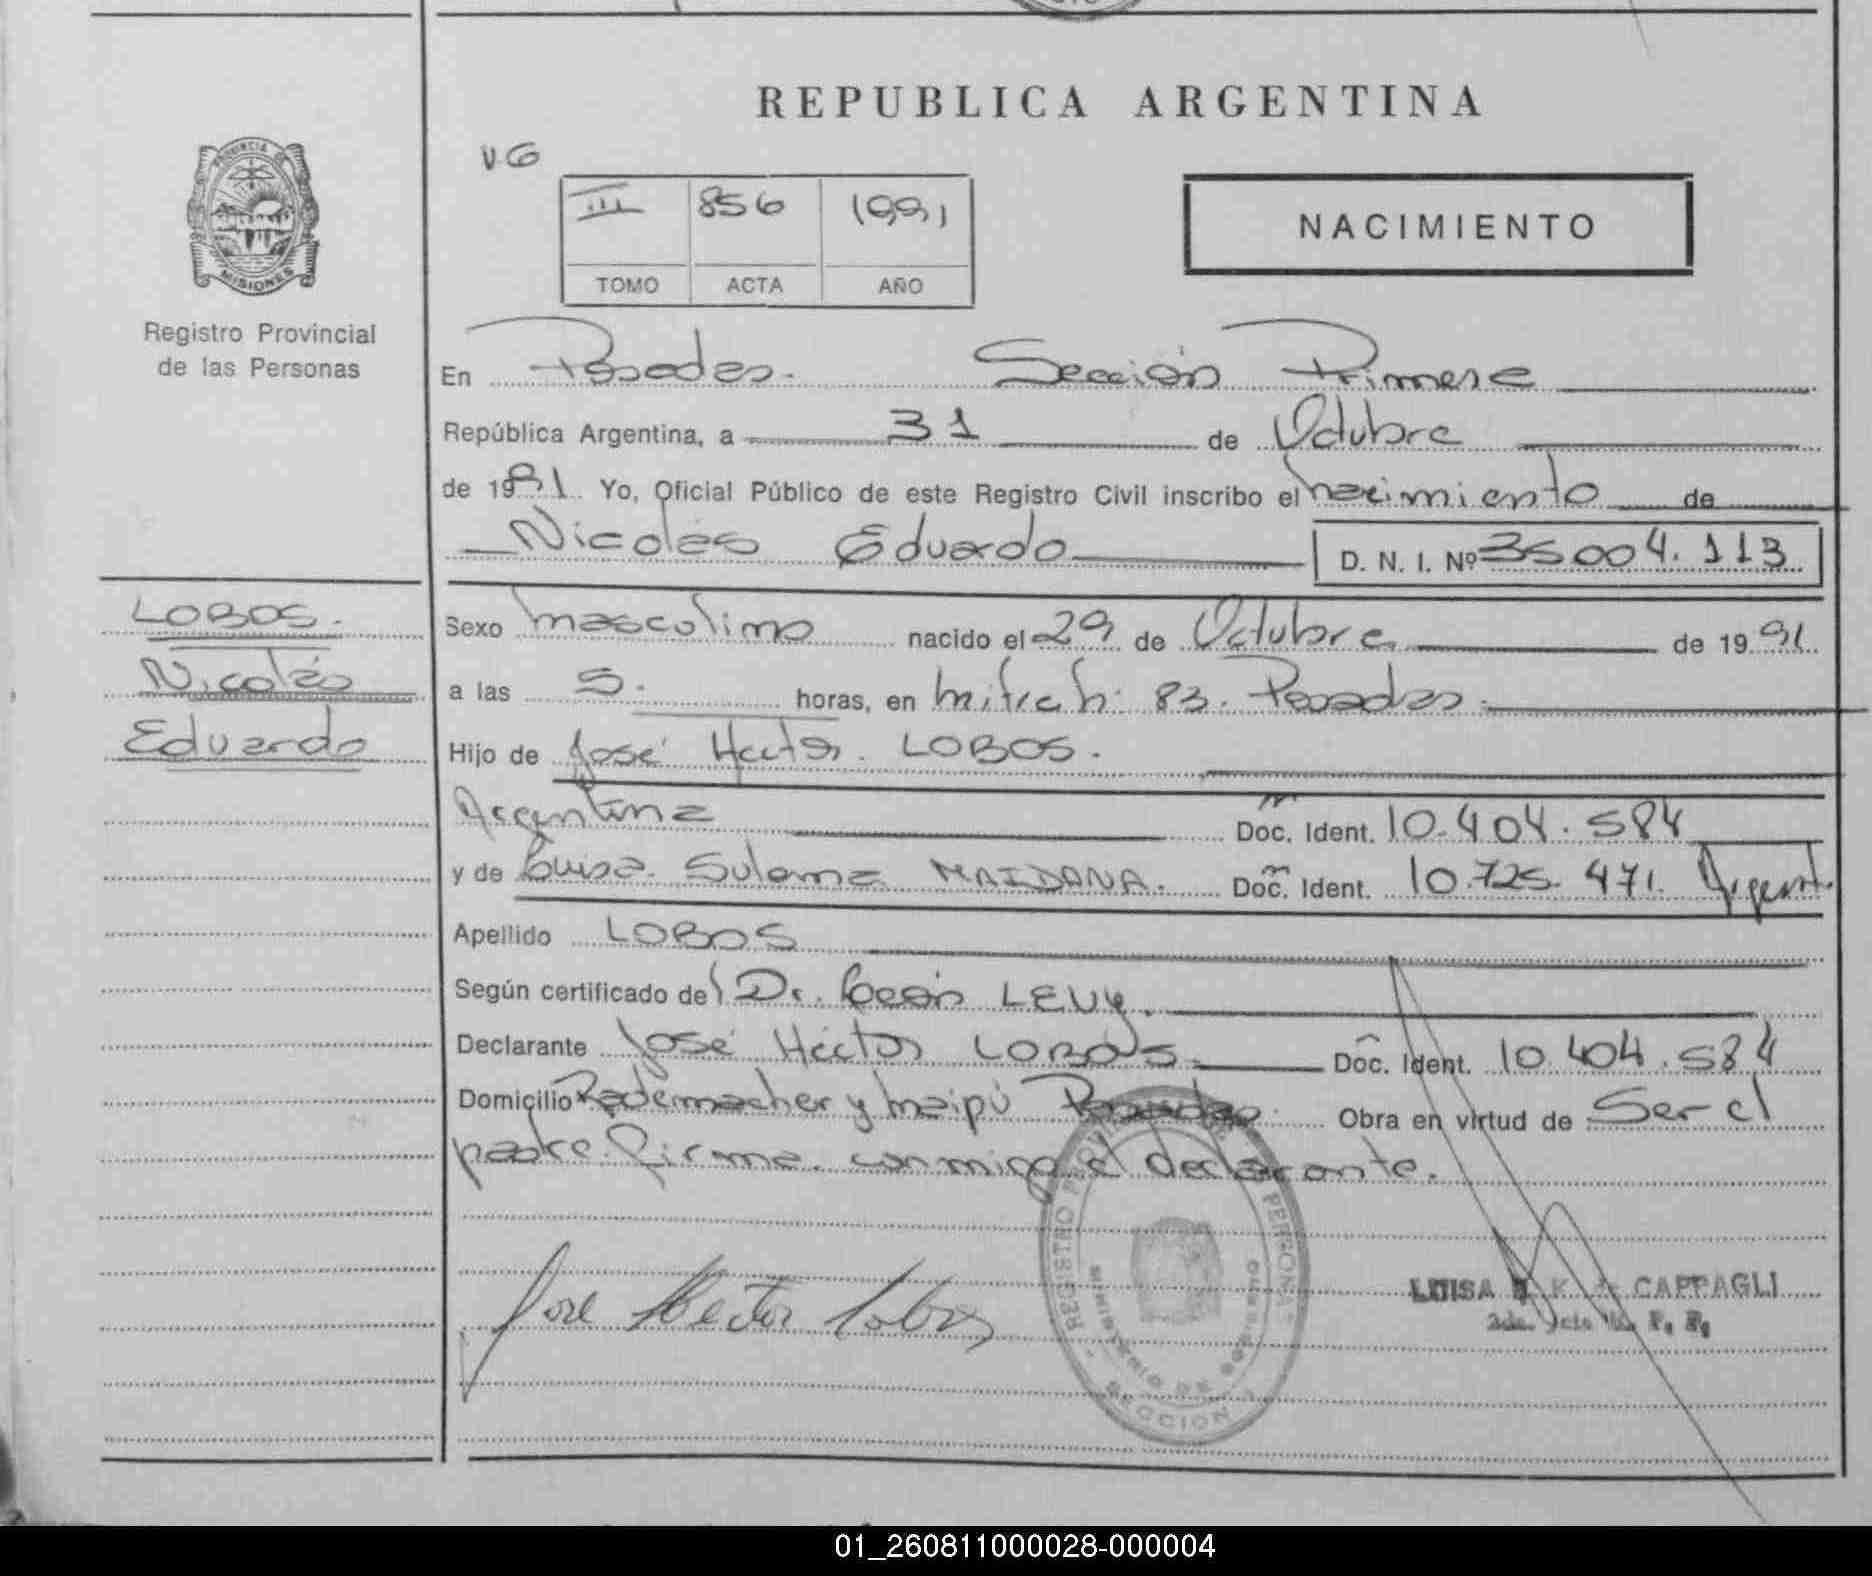 REPUBLICA ARGENTINA
VG
PROVINCIA DE
MISIONES
III 856 1991
TOMO ACTA AÑO
NACIMIENTO
Registro Provincial
de las Personas
En Posadas. Sección Primera
República Argentina, a 31 de Octubre
de 1991 Yo, Oficial Público de este Registro Civil inscribo el nacimiento de
Nicolás Eduardo D. N. I. Nº 35004.113
LOBOS.
Nicolás
Eduardo
Sexo masculino nacido el 29 de Octubre de 1991.
a las 5. horas, en Mitre 83. Posadas.
Hijo de José Hector. LOBOS.
Argentina Doc. Ident. 10.404.584
y de Luisa. Sulema MAIDANA. Doc. Ident. 10.725.471. Argent.
Apellido LOBOS
Según certificado del Dr. LEVY.
Declarante José Héctor LOBOS. Doc. Ident. 10.404.584
Domicilio Rademacher y Maipú Posadas. Obra en virtud de Ser el
padre. Firma. conmigo el declarante.
José Hector Lobos
REGISTRO PERSONAS
MINISTERIO DE
SECCION
LUISA K. de CAPPAGLI
01_260811000028-000004